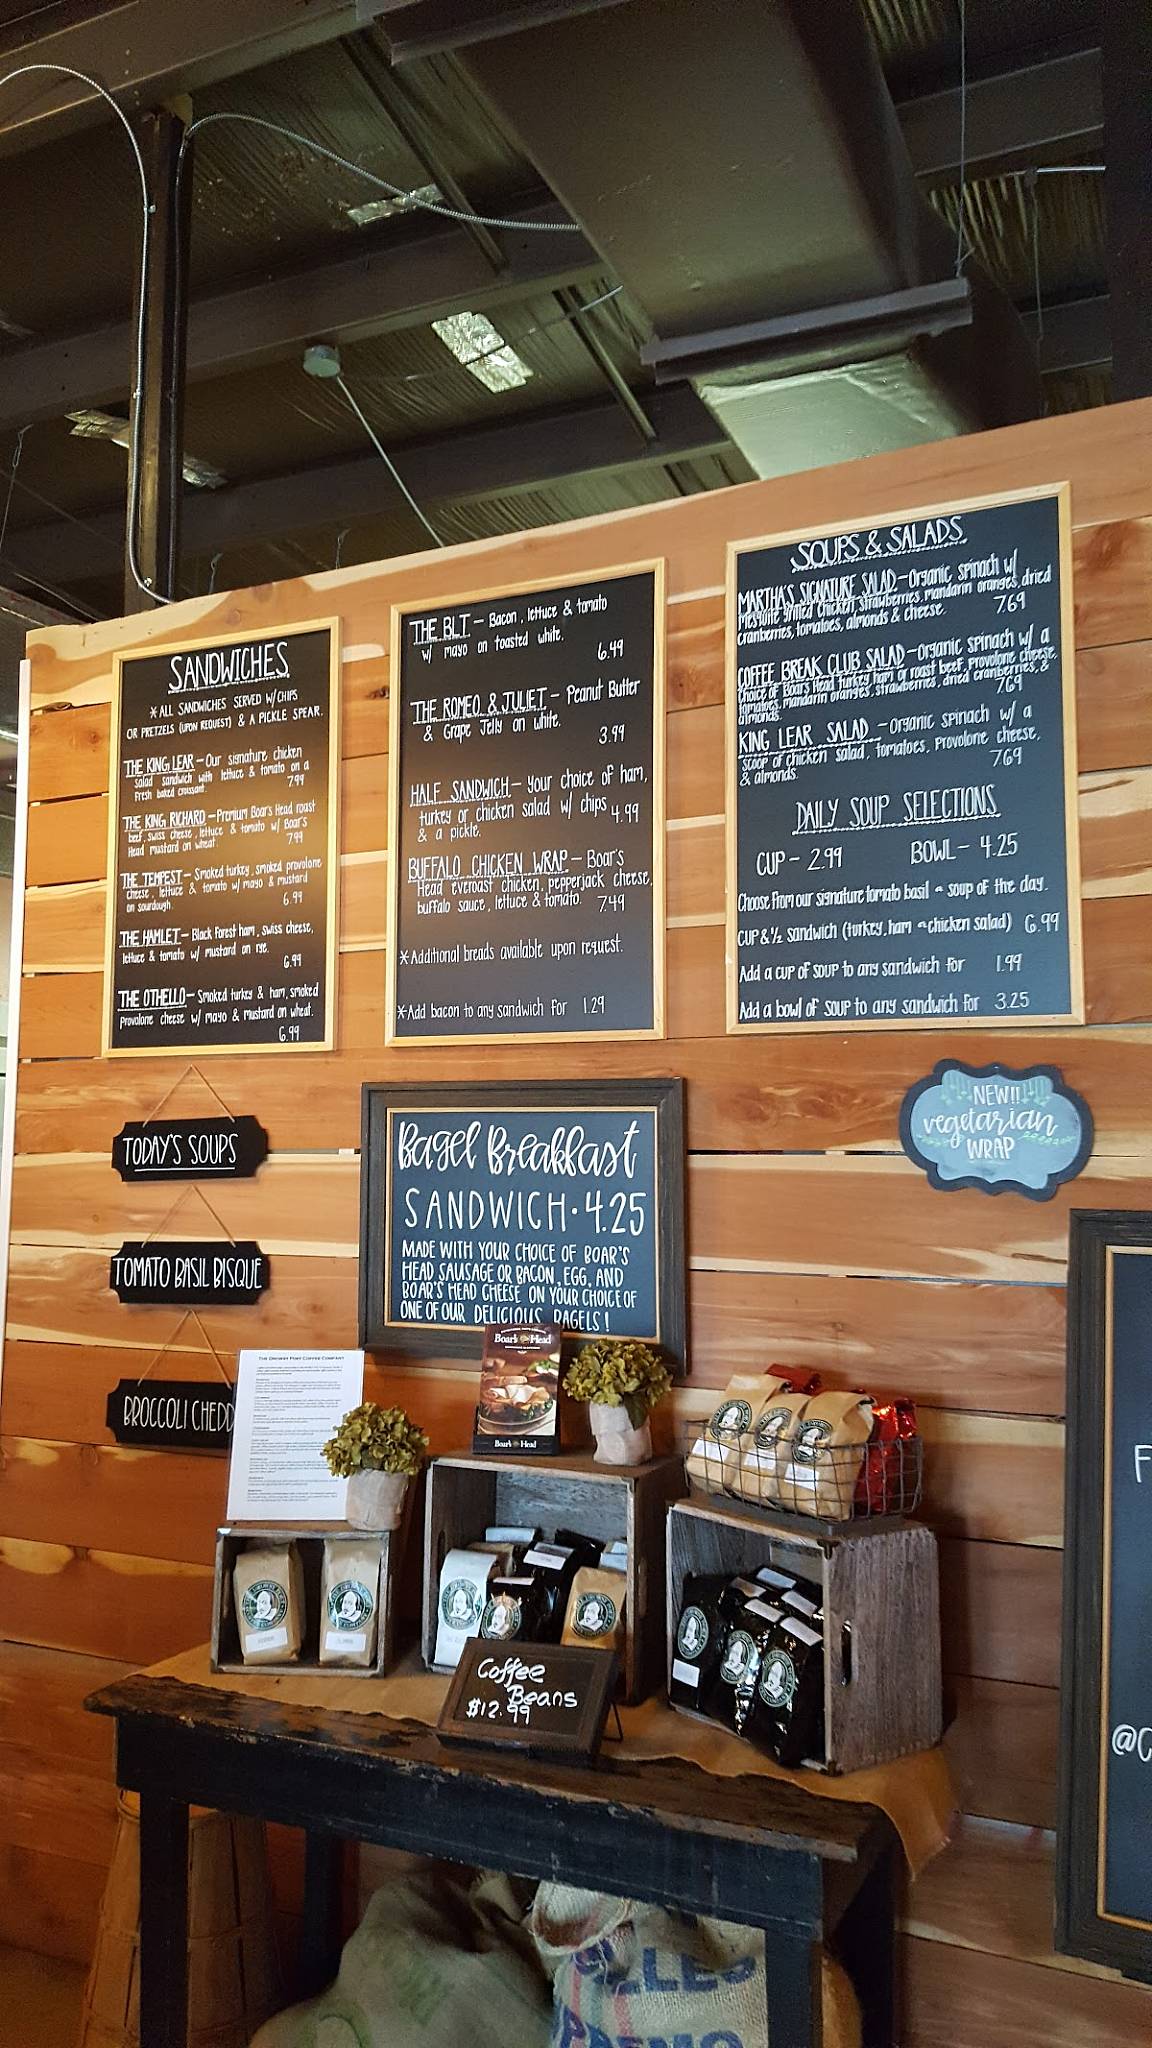 SANDWICHES
*ALL SANDWICHES SERVED W/CHIPS
OR PRETZELS (UPON REQUEST) & A PICKLE SPEAR.
THE KING LEAR - Our signature chicken
salad sandwich with lettuce & tomato on a
Fresh baked croissant. 7.99
THE KING RICHARD - Premium Boar's Head roast
beef, swiss cheese, lettuce & tomato w/ Boar's
Head mustard on wheat. 7.99
THE TEMPEST - Smoked turkey, smoked provolone
cheese, lettuce & tomato w/ mayo & mustard
on sourdough. 6.99
THE HAMLET - Black Forest ham, swiss cheese,
lettuce & tomato w/ mustard on rye.
6.99
THE OTHELLO - Smoked turkey & ham, smoked
provolone cheese w/ mayo & mustard on wheat.
6.99
THE BLT - Bacon, lettuce & tomato
w/ mayo on toasted white.
6.49
THE ROMEO & JULIET - Peanut Butter
& Grape Jelly on white.
3.99
HALF SANDWICH - your choice of ham,
turkey or chicken salad w/ chips
& a pickle. 4.99
BUFFALO CHICKEN WRAP - Boar's
Head everoast chicken, pepperjack cheese,
buffalo sauce, lettuce & tomato. 7.49
*Additional breads available upon request.
*Add bacon to any sandwich for 1.29
SOUPS & SALADS
MARTHA'S SIGNATURE SALAD - Organic spinach w/
Mesquite grilled chicken, strawberries, mandarin oranges, dried
cranberries, tomatoes, almonds & cheese. 7.69
COFFEE BREAK CLUB SALAD - Organic spinach w/ a
choice of Boar's Head turkey, ham or roast beef, provolone cheese,
tomatoes, mandarin oranges, strawberries, dried cranberries, &
almonds. 7.69
KING LEAR SALAD - Organic spinach w/ a
scoop of chicken salad, tomatoes, provolone cheese,
& almonds. 7.69
DAILY SOUP SELECTIONS
CUP - 2.99 BOWL - 4.25
Choose from our signature tomato basil or soup of the day.
CUP & ½ sandwich (turkey, ham or chicken salad) 6.99
Add a cup of soup to any sandwich for 1.99
Add a bowl of soup to any sandwich for 3.25
TODAY'S SOUPS
TOMATO BASIL BISQUE
BROCCOLI CHEDD
Bagel Breakfast
SANDWICH · 4.25
MADE WITH YOUR CHOICE OF BOAR'S
HEAD SAUSAGE OR BACON, EGG, AND
BOAR'S HEAD CHEESE ON YOUR CHOICE OF
ONE OF OUR DELICIOUS BAGELS!
NEW!!
vegetarian
WRAP
Boar's Head
Boar's Head
Coffee
Beans
$12.99
F
@C